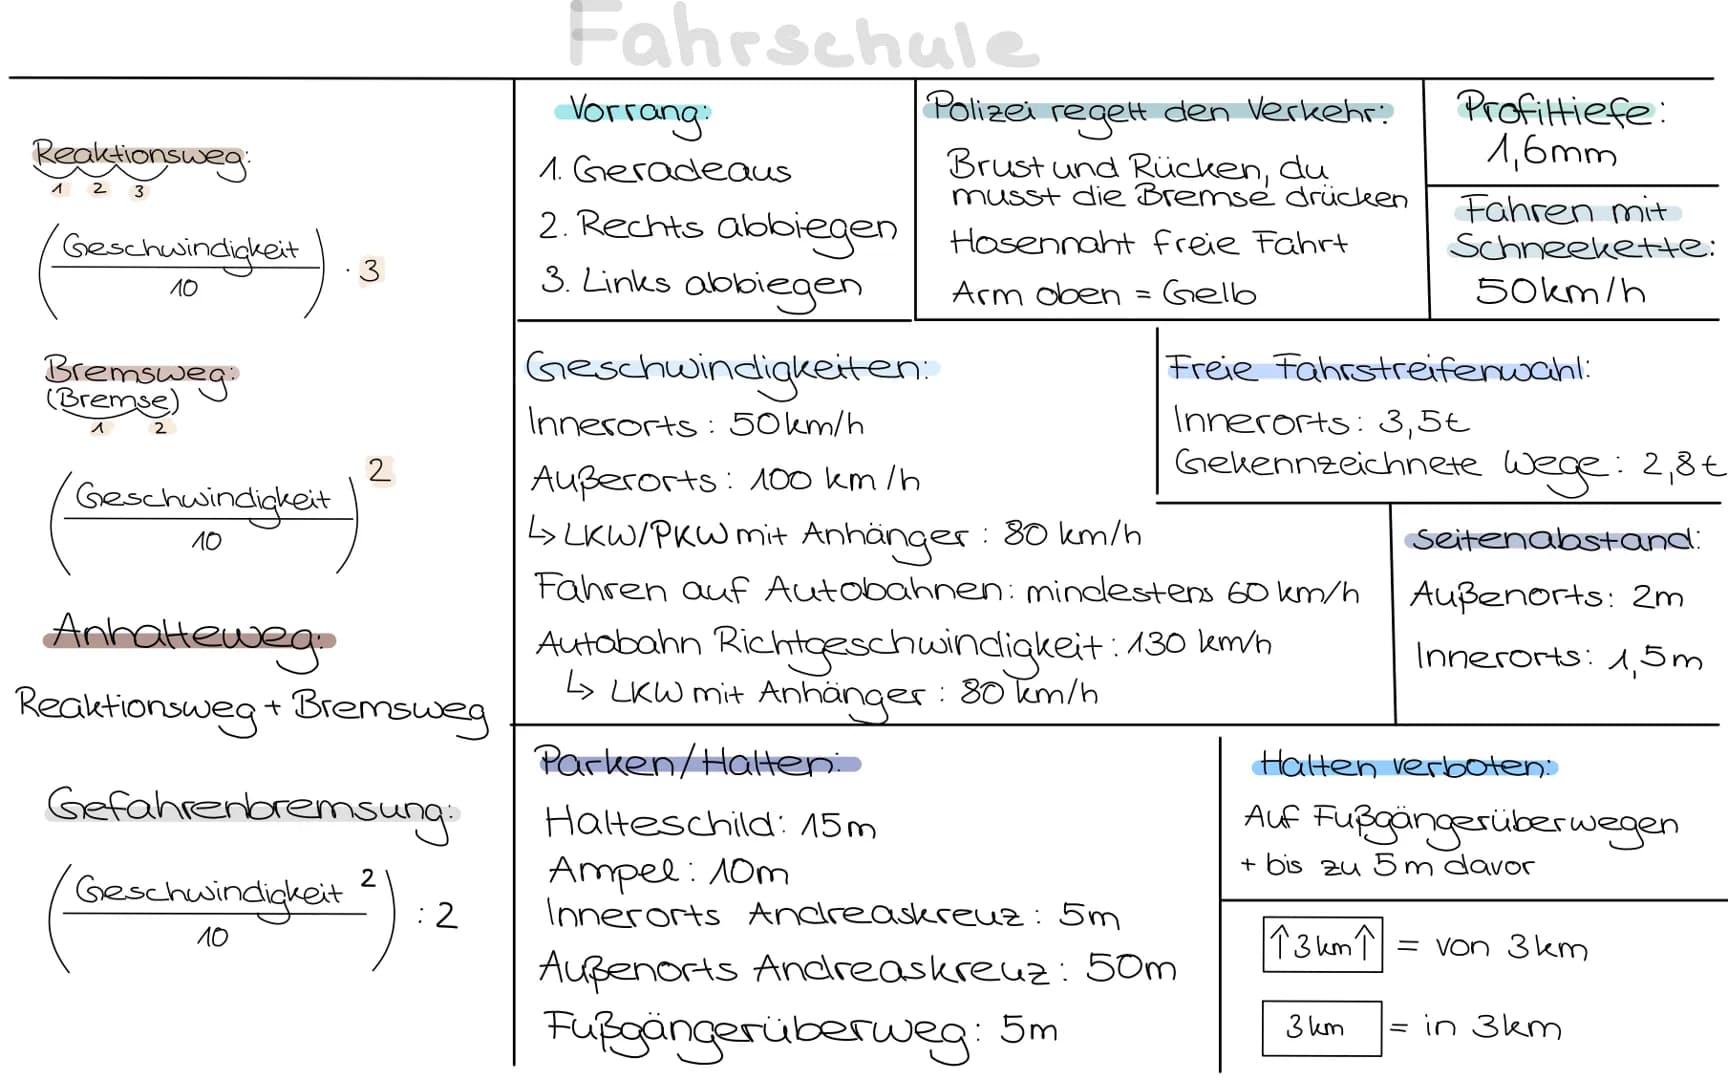 Fahrschule
Reaktionsweg:
1 2 3
(Geschwindigkeit / 10) · 3
Bremsweg:
(Bremse)
1 2
(Geschwindigkeit / 10)²
Anhalteweg:
Reaktionsweg + Bremsweg
Gefahrenbremsung:
(Geschwindigkeit² / 10) : 2
Vorrang:
1. Geradeaus
2. Rechts abbiegen
3. Links abbiegen
Polizei regelt den Verkehr:
Brust und Rücken, du
musst die Bremse drücken
Hosennaht freie Fahrt
Arm oben = Gelb
Profiltiefe:
1,6mm
Fahren mit
Schneekette:
50km/h
Geschwindigkeiten:
Innerorts: 50km/h
Außerorts: 100 km/h
↳ LKW/PKW mit Anhänger: 80 km/h
Fahren auf Autobahnen: mindestens 60 km/h
Autobahn Richtgeschwindigkeit: 130 km/h
↳ LKW mit Anhänger: 80 km/h
Freie Fahrstreifenwahl:
Innerorts: 3,5t
Gekennzeichnete Wege: 2,8t
Seitenabstand:
Außenorts: 2m
Innerorts: 1,5m
Parken/Halten:
Halteschild: 15m
Ampel: 10m
Innerorts Andreaskreuz: 5m
Außenorts Andreaskreuz: 50m
Fußgängerüberweg: 5m
Halten verboten:
Auf Fußgängerüberwegen
+ bis zu 5m davor
↑3km↑ = von 3km
3km = in 3km